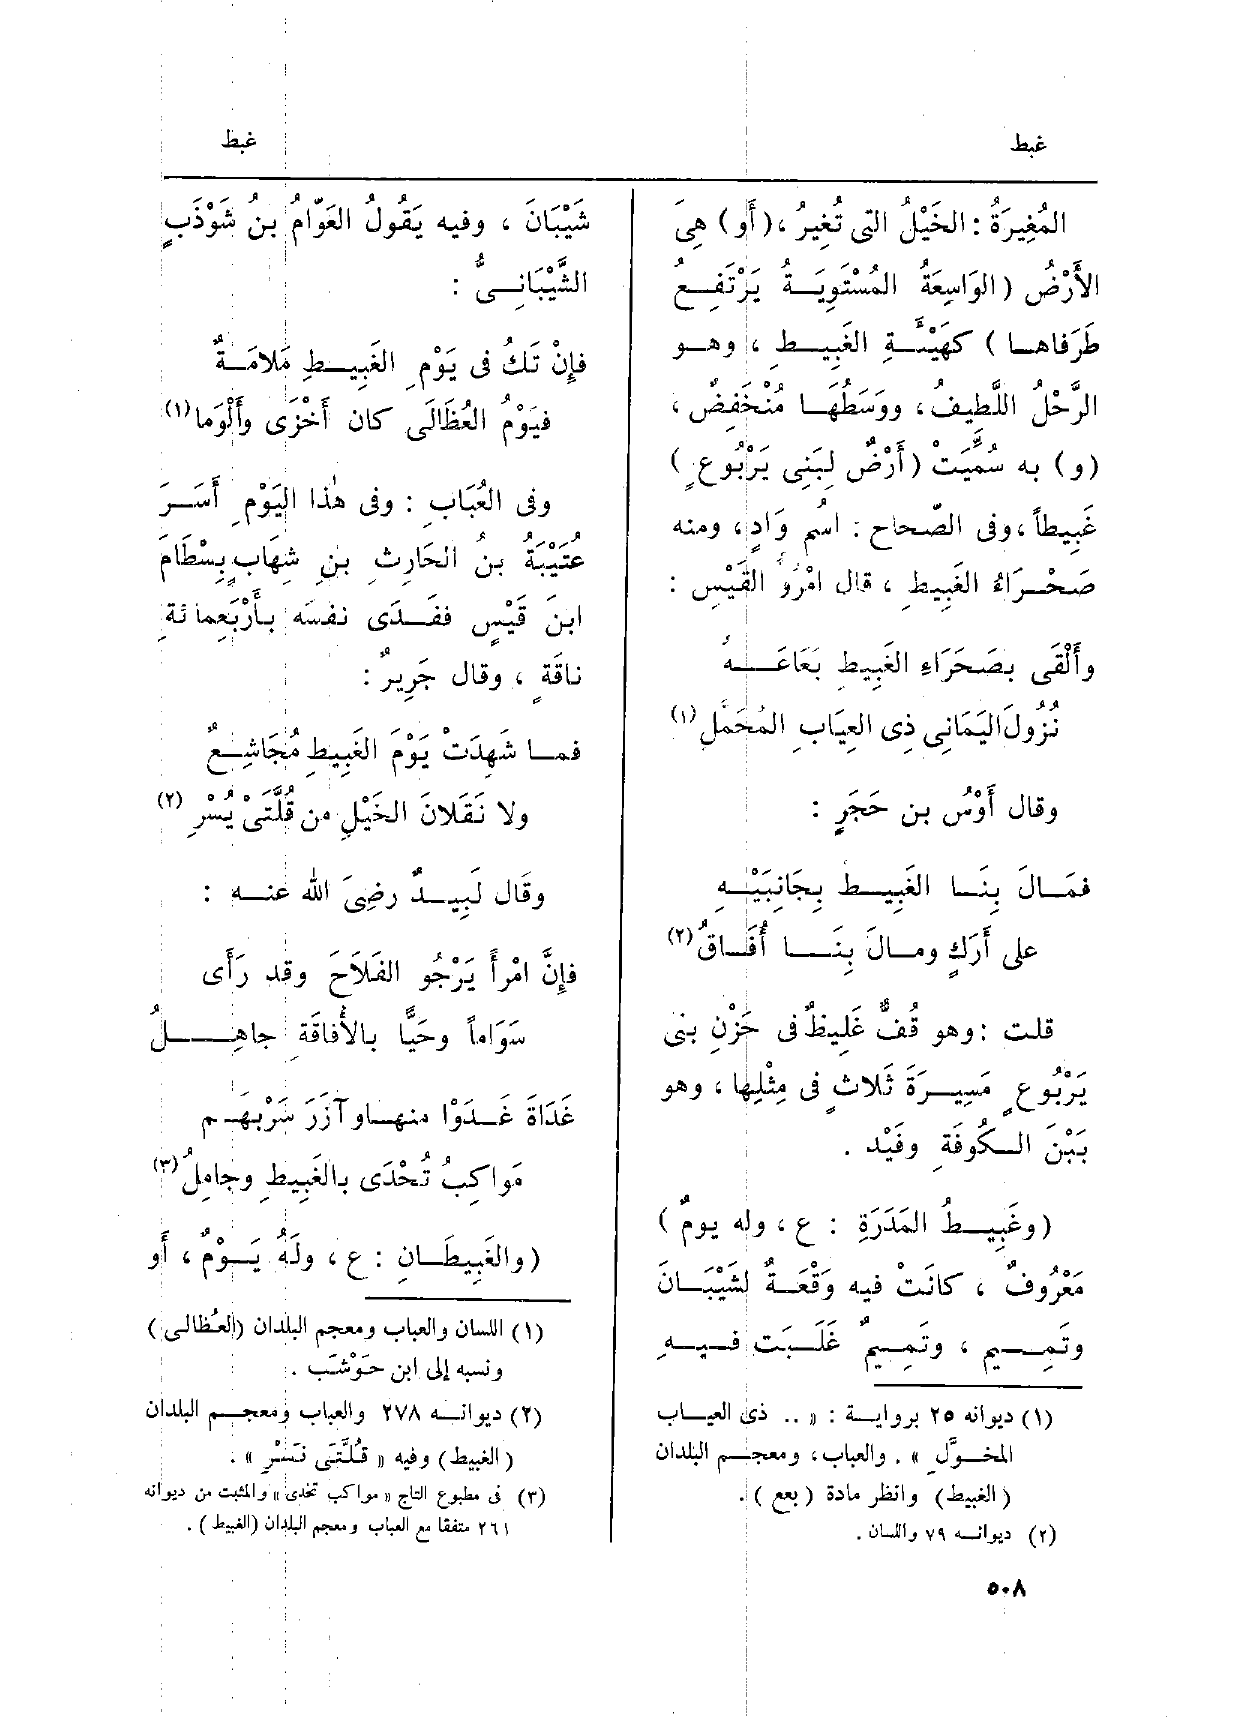 غبط
غبط
المُغِيرَةُ : الخَيْلُ التى تُغِيرُ ، (أَو) هِىَ
الأَرْضُ (الوَاسِعَةُ المُسْتَوِيَةُ يَرْتَفِعُ
طَرَفاها ) كهَيْئَةِ الغَبِيطِ ، وهو
الرَّحْلُ اللَّطِيفُ ، ووَسَطُهَا مُنْخَفِضٌ ،
(و) به سُمِّيَتْ (أَرْضٌ لِبَنِى يَرْبُوعٍ )
غَبِيطاً ، وفى الصّحاح : اسُم وَادٍ ، ومنه
صَحْرَاءُ الغَبِيطِ ، قال امْرُؤُ القَيْسِ :
وأَلْقَى بصَحَرَاءِ الغَبِيطِ بَعَاعَهُ
نُزُولَ اليَمَانِى ذِى العِيَابِ المُحَمَّلِ (١)
وقال أَوْسُ بن حَجَرٍ :
فمَالَ بِنَا الغَبِيطُ بِجَانِبَيْهِ
على أَرَكٍ ومالَ بِنَا أُفَاقُ (٢)
قلت : وهو قُفٌّ غَلِيظٌ فى حَزْنِ بنى
يَرْبُوعٍ مَسِيرَةَ ثَلاثٍ فى مِثْلِها ، وهو
بَيْنَ الكُوفَةِ وفَيْد .
(وغَبِيطُ المَدَرَةِ : ع ، وله يومٌ )
مَعْرُوفٌ ، كانَتْ فيه وَقْعَةٌ لشَيْبَانَ
وتَمِيمٍ ، وتَمِيمٌ غَلَبَت فيهِ
(١) ديوانه ٢٥ برواية : « .. ذى العياب
المخوَّلِ » . والعباب ، ومعجم البلدان
(الغبيط) وانظر مادة (بعع ) .
(٢) ديوانه ٧٩ واللسان .
شَيْبَانَ ، وفيه يَقُولُ العَوّامُ بنُ شَوْذَبٍ
الشَّيْبَانِىُّ :
فإِنْ تَكُ فى يَوْمِ الغَبِيطِ مَلامَةٌ
فيَوْمُ العُظَالَى كان أَخْزَى وأَلْوَما (١)
وفى العُبَابِ : وفى هٰذا اليَوْمِ أَسَرَ
عُتَيْبَةُ بنُ الحَارِثِ بنِ شِهَابٍ بِسْطَامَ
ابنَ قَيْسٍ ففَدَى نفسَه بأَرْبَعِمائةِ
ناقَةٍ ، وقال جَرِيرٌ :
فما شَهِدَتْ يَوْمَ الغَبِيطِ مُجَاشِعٌ
ولا نَقَلانَ الخَيْلِ من قُلَّتَىْ يُسْرِ (٢)
وقَال لَبِيدٌ رضِىَ الله عنه :
فإِنَّ امْرأً يَرْجُو الفَلاَحَ وقد رَأَى
سَوَاماً وحَيًّا بالأُفاقَةِ جاهِلُ
غَدَاةَ غَدَوْا منها وآزَرَ سَرْبَهُم
مَواكِبُ تُحْدَى بالغَبِيطِ وجامِلُ (٣)
(والغَبِيطَانِ : ع ، ولَهُ يَوْمٌ ، أَو
(١) اللسان والعباب ومعجم البلدان (العُظالى )
ونسبه إلى ابن حَوْشَب .
(٢) ديوانه ٢٧٨ والعباب ومعجم البلدان
(الغبيط) وفيه « قُلَّتَى نَسْرِ » .
(٣) فى مطبوع التاج « مواكب تخدى » والمثبت من ديوانه
٢٦١ متفقا مع العباب ومعجم البلدان (الغبيط ) .
٥٠٨